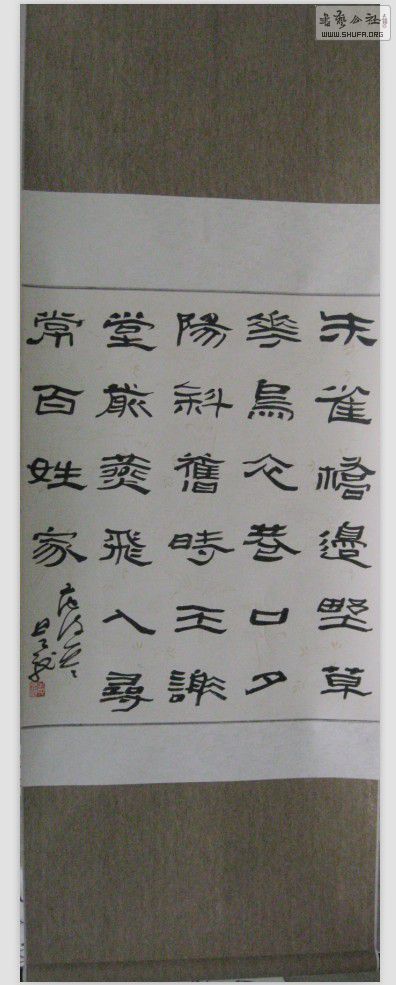 朱雀橋邊野草
花烏衣巷口夕
陽斜舊時王謝
堂前燕飛入尋
常百姓家
書藝公社
WWW.SHUFA.ORG